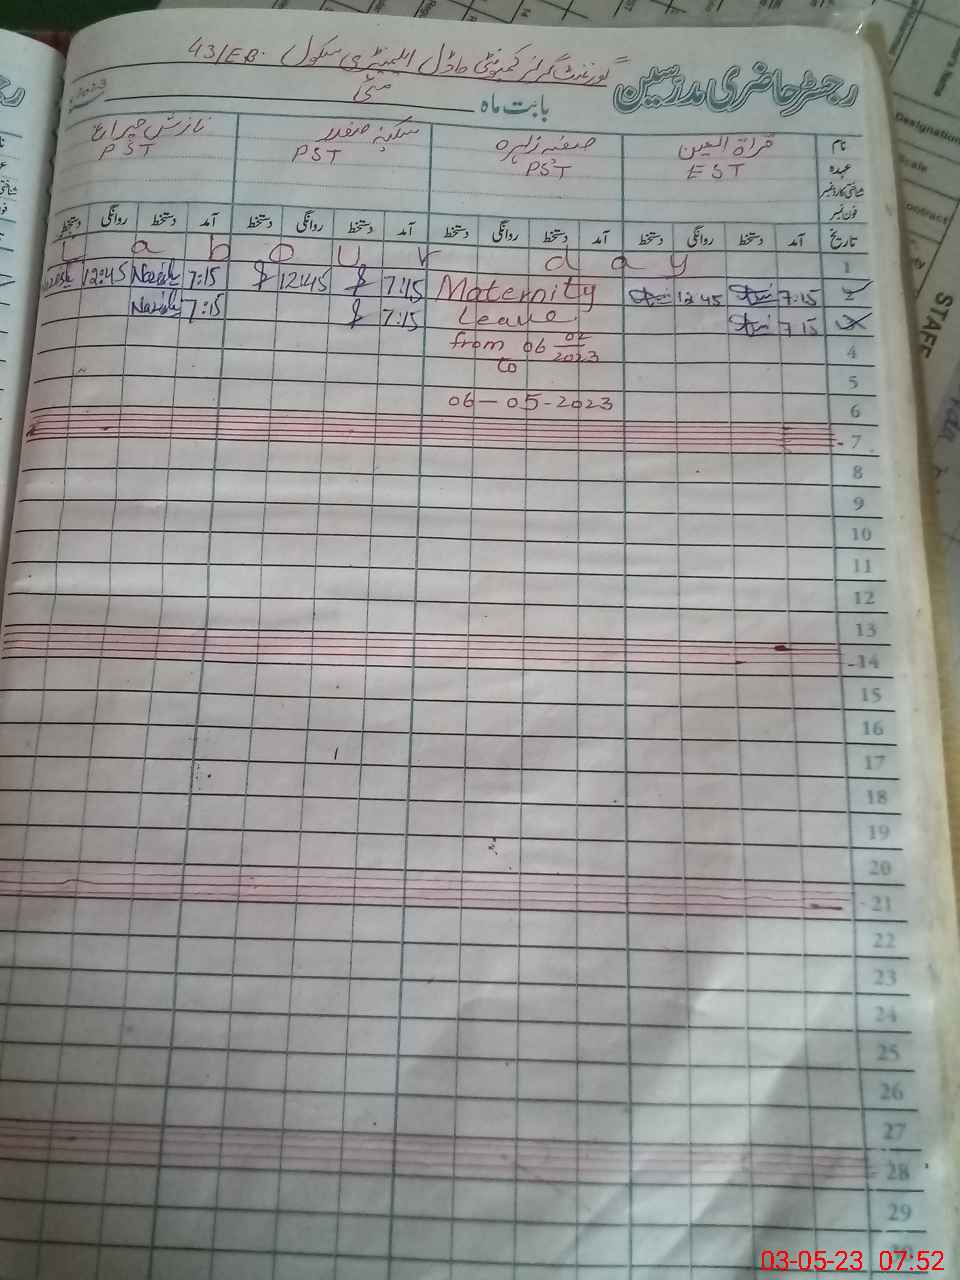 رجسٹر حاضری مدرسین گورنمنٹ گرلز کمیونٹی ماڈل ایلیمنٹری سکول 43/EB.
بابت ماہ مئی 2023
نام قراۃ العین صفیہ زاہرہ سکینہ صفدر نازش چراغ
عہدہ EST PST PST PST
شناختی کارڈ نمبر
فون نمبر
تاریخ آمد دستخط روانگی دستخط آمد دستخط روانگی دستخط آمد دستخط روانگی دستخط آمد دستخط روانگی دستخط
1 L a b o u r d a y
2 7:15 12:45 Maternity 7:15 12:45 7:15 Nazish 12:45 Nazish
3 7:15 Leave 7:15 7:15 Nazish
4 from 06 02/2023
5 to
6 06-05-2023
7
8
9
10
11
12
13
14
15
16
17
18
19
20
21
22
23
24
25
26
27
28
29
Designation
Scale
Contract
STAFF
03-05-23 07:52